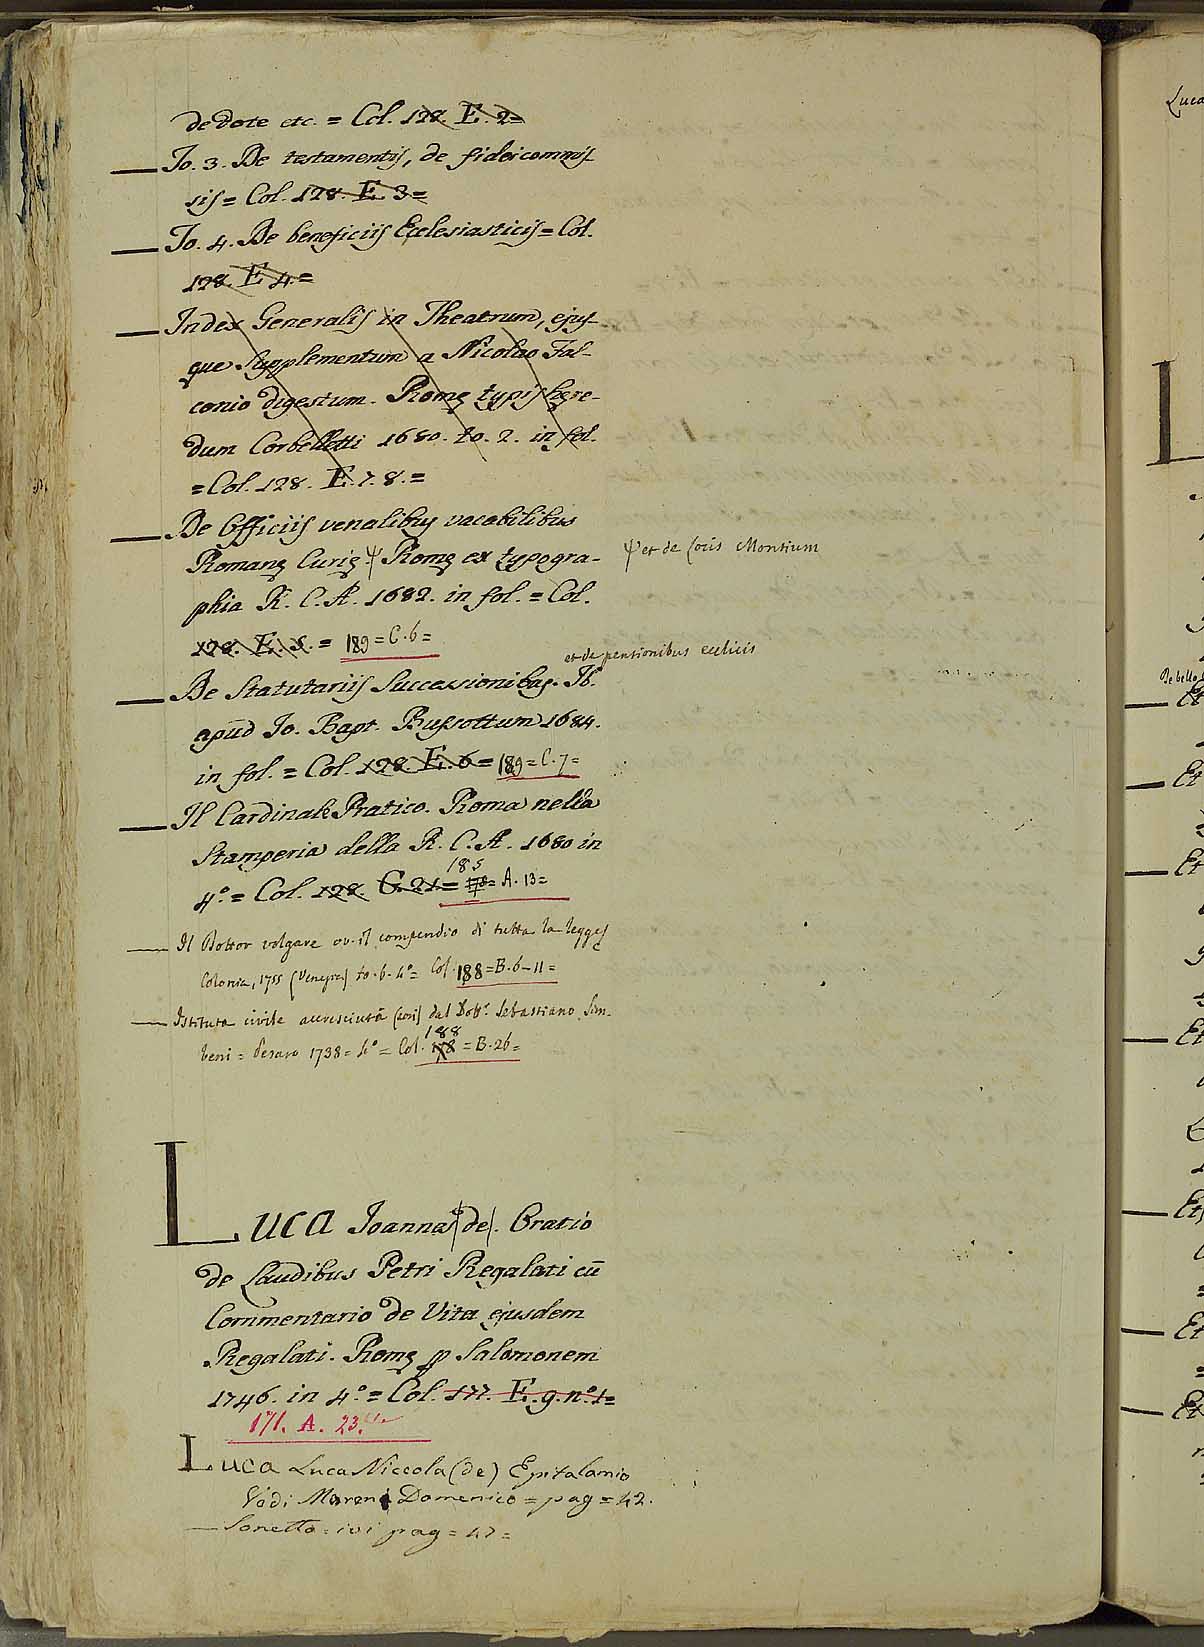 de dote etc. = Col. 128. E. 2=
To. 3. De testamentis, de fideicommis
sis = Col. 128. E 3=
To. 4. De beneficiis Ecclesiasticis = Col.
128. E 4.=
Index Generalis in Theatrum, ejus-
que Supplementum a Nicolao Fal-
conio digestum. Romę typis hęre-
dum Corbelletti 1680. to. 2. in fol.
= Col. 128. E. 7. 8. =
De Officiis venalibus vacabilibus
Romanę Curię. Ψ Romę ex typogra-
Ψ et de Locis Montium
phia R. C. A. 1682. in fol. = Col.
128. E. 5. = 189 = C. 6 =
et de pensionibus ecclicis
De Statutariis Successionibus. Ib.
apud Jo. Bapt. Bussottum 1684.
in fol. = Col. 128. E. 6 = 189 = C. 7 =
Il Cardinale Pratico. Roma nella
Stamperia della R. C. A. 1680 in
185
4.º = Col. 128. G. 21 = 178 = A. 13 =
Il Dottor volgare ov. il compendio di tutta la legge
Colonia, 1755 (Venezia) to. 6. 4º = Col. 188 = B. 6-11 =
Istituta civile accresciuta (cori) dal Dottr. Sebastiano Sim-
188
beni = Pesaro 1738 = 4º = Col. 178 = B. 26 =
Luca Joanna (de). Oratio
de Laudibus Petri Regalati cū
Commentario de Vita ejusdem
Regalati. Romę p Salomonem
1746. in 4.º = Col. 177. E. 9. nº. 1=
171. A. 23.
Luca Luca Niccola (de) Epitalamio
Vedi Moreni Domenico = pag = 42.
Sonetto = ivi pag = 47 =